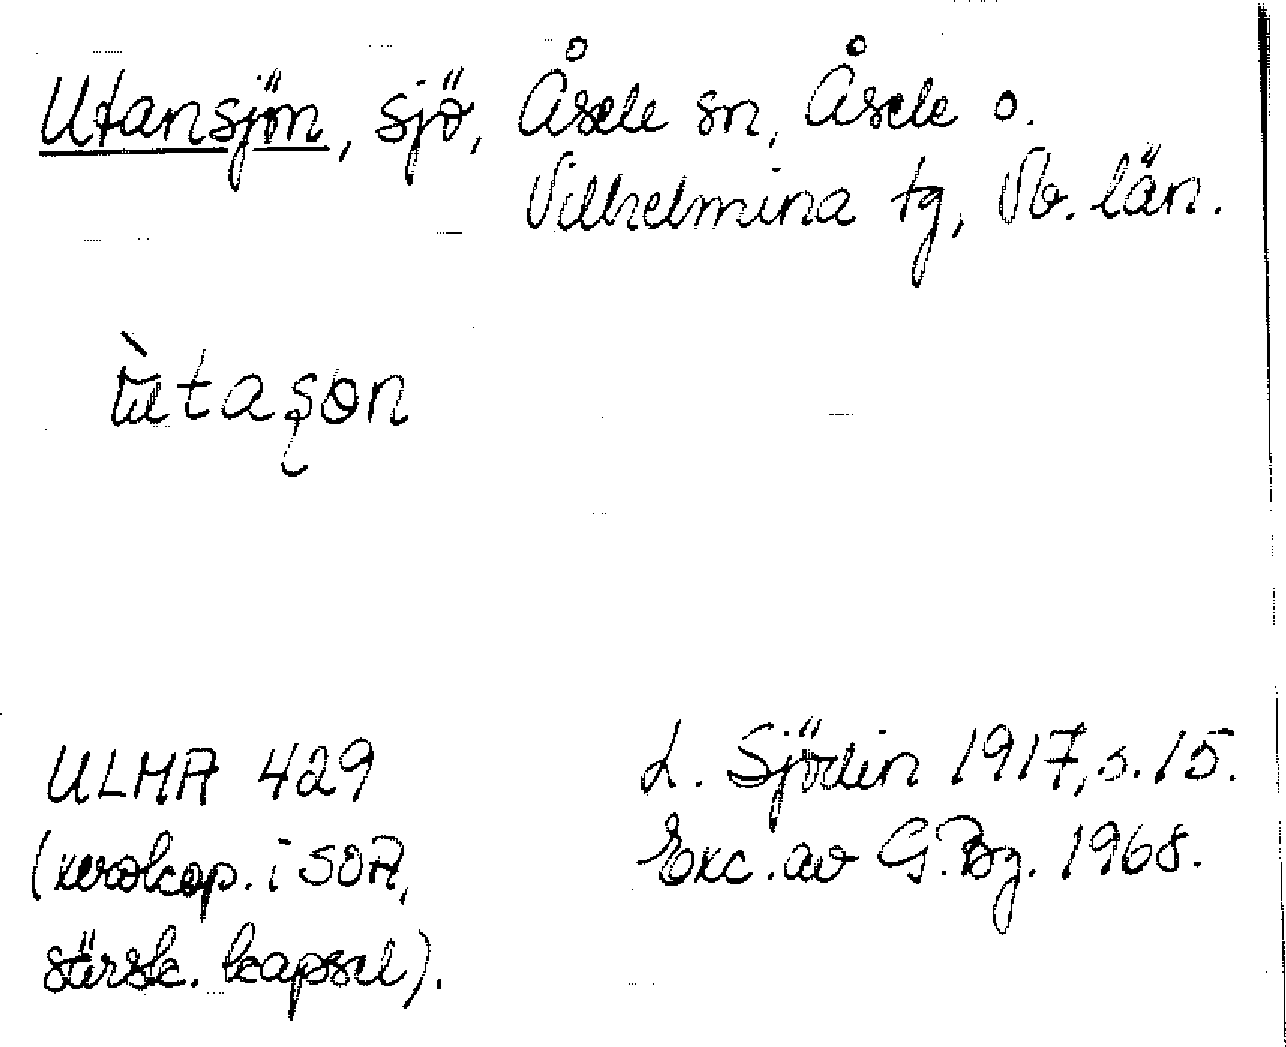 Utansjön, sjö, Åsele sn, Åsele o.
Vilhelmina tg, Vb. län.
ùtaşon
ULMA 429
(xerokop. i SOA,
särsk. kapsel).
L. Sjödin 1917, s. 15.
Exc. av G. Bg. 1968.